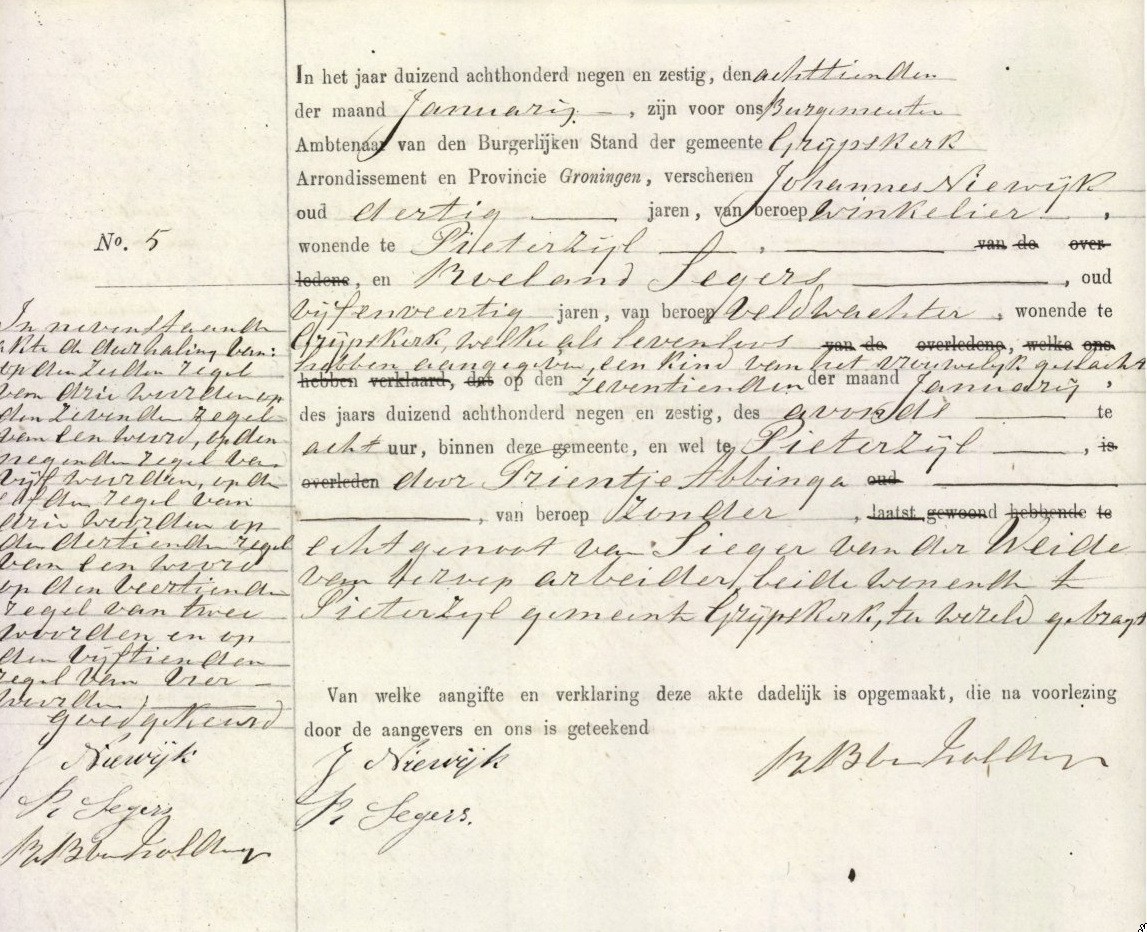 No. 5
In nevenstaande
akte de doorhaling van:
op den zesden regel
van drie woorden op
den zevenden regel
van een woord, op den
negenden regel van
vijf woorden, op de
elfden regel van
drie woorden op
den dertienden regel
van een woord
op den veertienden
regel van twee
woorden en op
den vijftienden
regel van vier
woorden
goedgekeurd
J Niewijk
R. Segers
In het jaar duizend achthonderd negen en zestig, den achttienden
der maand Januarij —, zijn voor ons Burgemeester
Ambtenaar van den Burgerlijken Stand der gemeente Grijpskerk
Arrondissement en Provincie Groningen, verschenen Johannes Niewijk
oud dertig — jaren, van beroep winkelier —,
wonende te Pieterzijl —, — van de over-
ledene, en Roeland Segers —, oud
vijfenveertig jaren, van beroep veldwachter, wonende te
Grijpskerk, welke als levenloos van de overledene, welke ons
hebben aangegeven, een kind van het vrouwelijk geslacht
hebben verklaard, dat op den zeventienden der maand Januarij,
des jaars duizend achthonderd negen en zestig, des avonds — te
acht uur, binnen deze gemeente, en wel te Pieterzijl —, is
overleden door Trientje Abbinga oud —
—, van beroep zonder, laatst gewoond hebbende te
echtgenoot van Sieger van der Weide
van beroep arbeider, beide wonende te
Pieterzijl gemeente Grijpskerk, ter wereld gebragt
Van welke aangifte en verklaring deze akte dadelijk is opgemaakt, die na voorlezing
door de aangevers en ons is geteekend
J Niewijk
R. Segers.